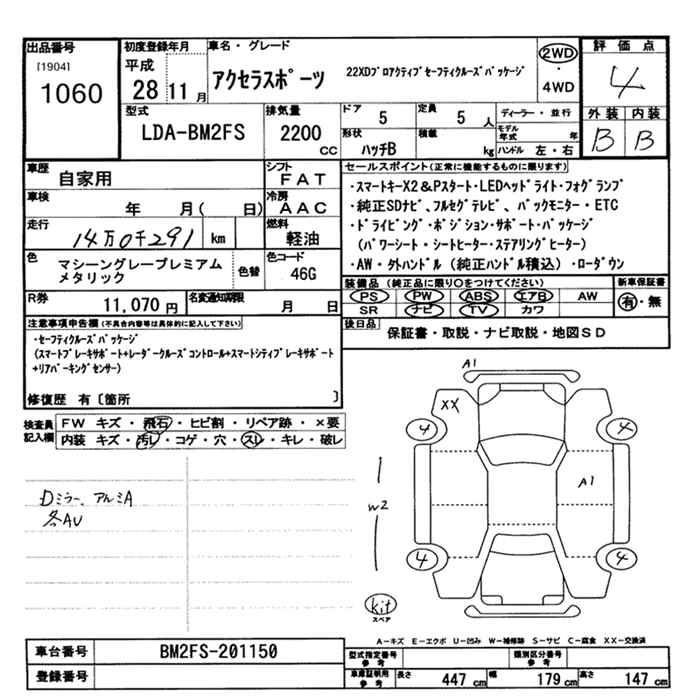 出品番号
[1904]
1060
初度登録年月
平成
28 11 月
車名・グレード
アクセラスポーツ
22XDプロアクティブセーフティクルーズパッケージ
2WD
・
4WD
評価点
4
外装 内装
B B
型式
LDA-BM2FS
排気量
2200 CC
ドア 5
定員 5 人
ディーラー・並行
形状 ハッチB
積載 kg
モデル年式 年
ハンドル 左・右
車歴 自家用
シフト FAT
車検 年 月( 日)
冷房 AAC
走行 14万0千291 km
燃料 軽油
色 マシーングレープレミアム
メタリック
色替
色コード 46G
R券 11,070 円
名変通知期限 月 日
セールスポイント(正常に機能するものに限ります)
・スマートキーX2&Pスタート・LEDヘッドライト・フォグランプ
・純正SDナビ、フルセグテレビ、バックモニター・ETC
・ドライビング・ポジション・サポート・パッケージ
(パワーシート・シートヒーター・ステアリングヒーター)
・AW・外ハンドル(純正ハンドル積込)・ローダウン
装備品(純正品に限り○をつけてください)
PS PW ABS エアB AW
SR ナビ TV カワ
新車保証書
有・無
後日品 保証書・取説・ナビ取説・地図SD
注意事項申告欄(不具合内容等は具体的に記入して下さい)
・セーフティクルーズパッケージ
(スマートブレーキサポート+レーダークルーズコントロール+スマートシティブレーキサポート
+リアパーキングセンサー)
修復歴 有〔箇所 〕
検査員記入欄
FW キズ・飛石・ヒビ割・リペア跡・×要
内装 キズ・汚レ・コゲ・穴・スレ・キレ・破レ
Dミラー、アルミA
各AU
A1
XX
4
4
A1
W2
4
4
kit
スペア
A-キズ E-エクボ U-凹み W-補修跡 S-サビ C-腐食 XX-交換済
車台番号 BM2FS-201150
登録番号
型式指定番号
参考
類別区分番号
参考
車庫証明用
参考
長さ 447 cm 幅 179 cm 高さ 147 cm